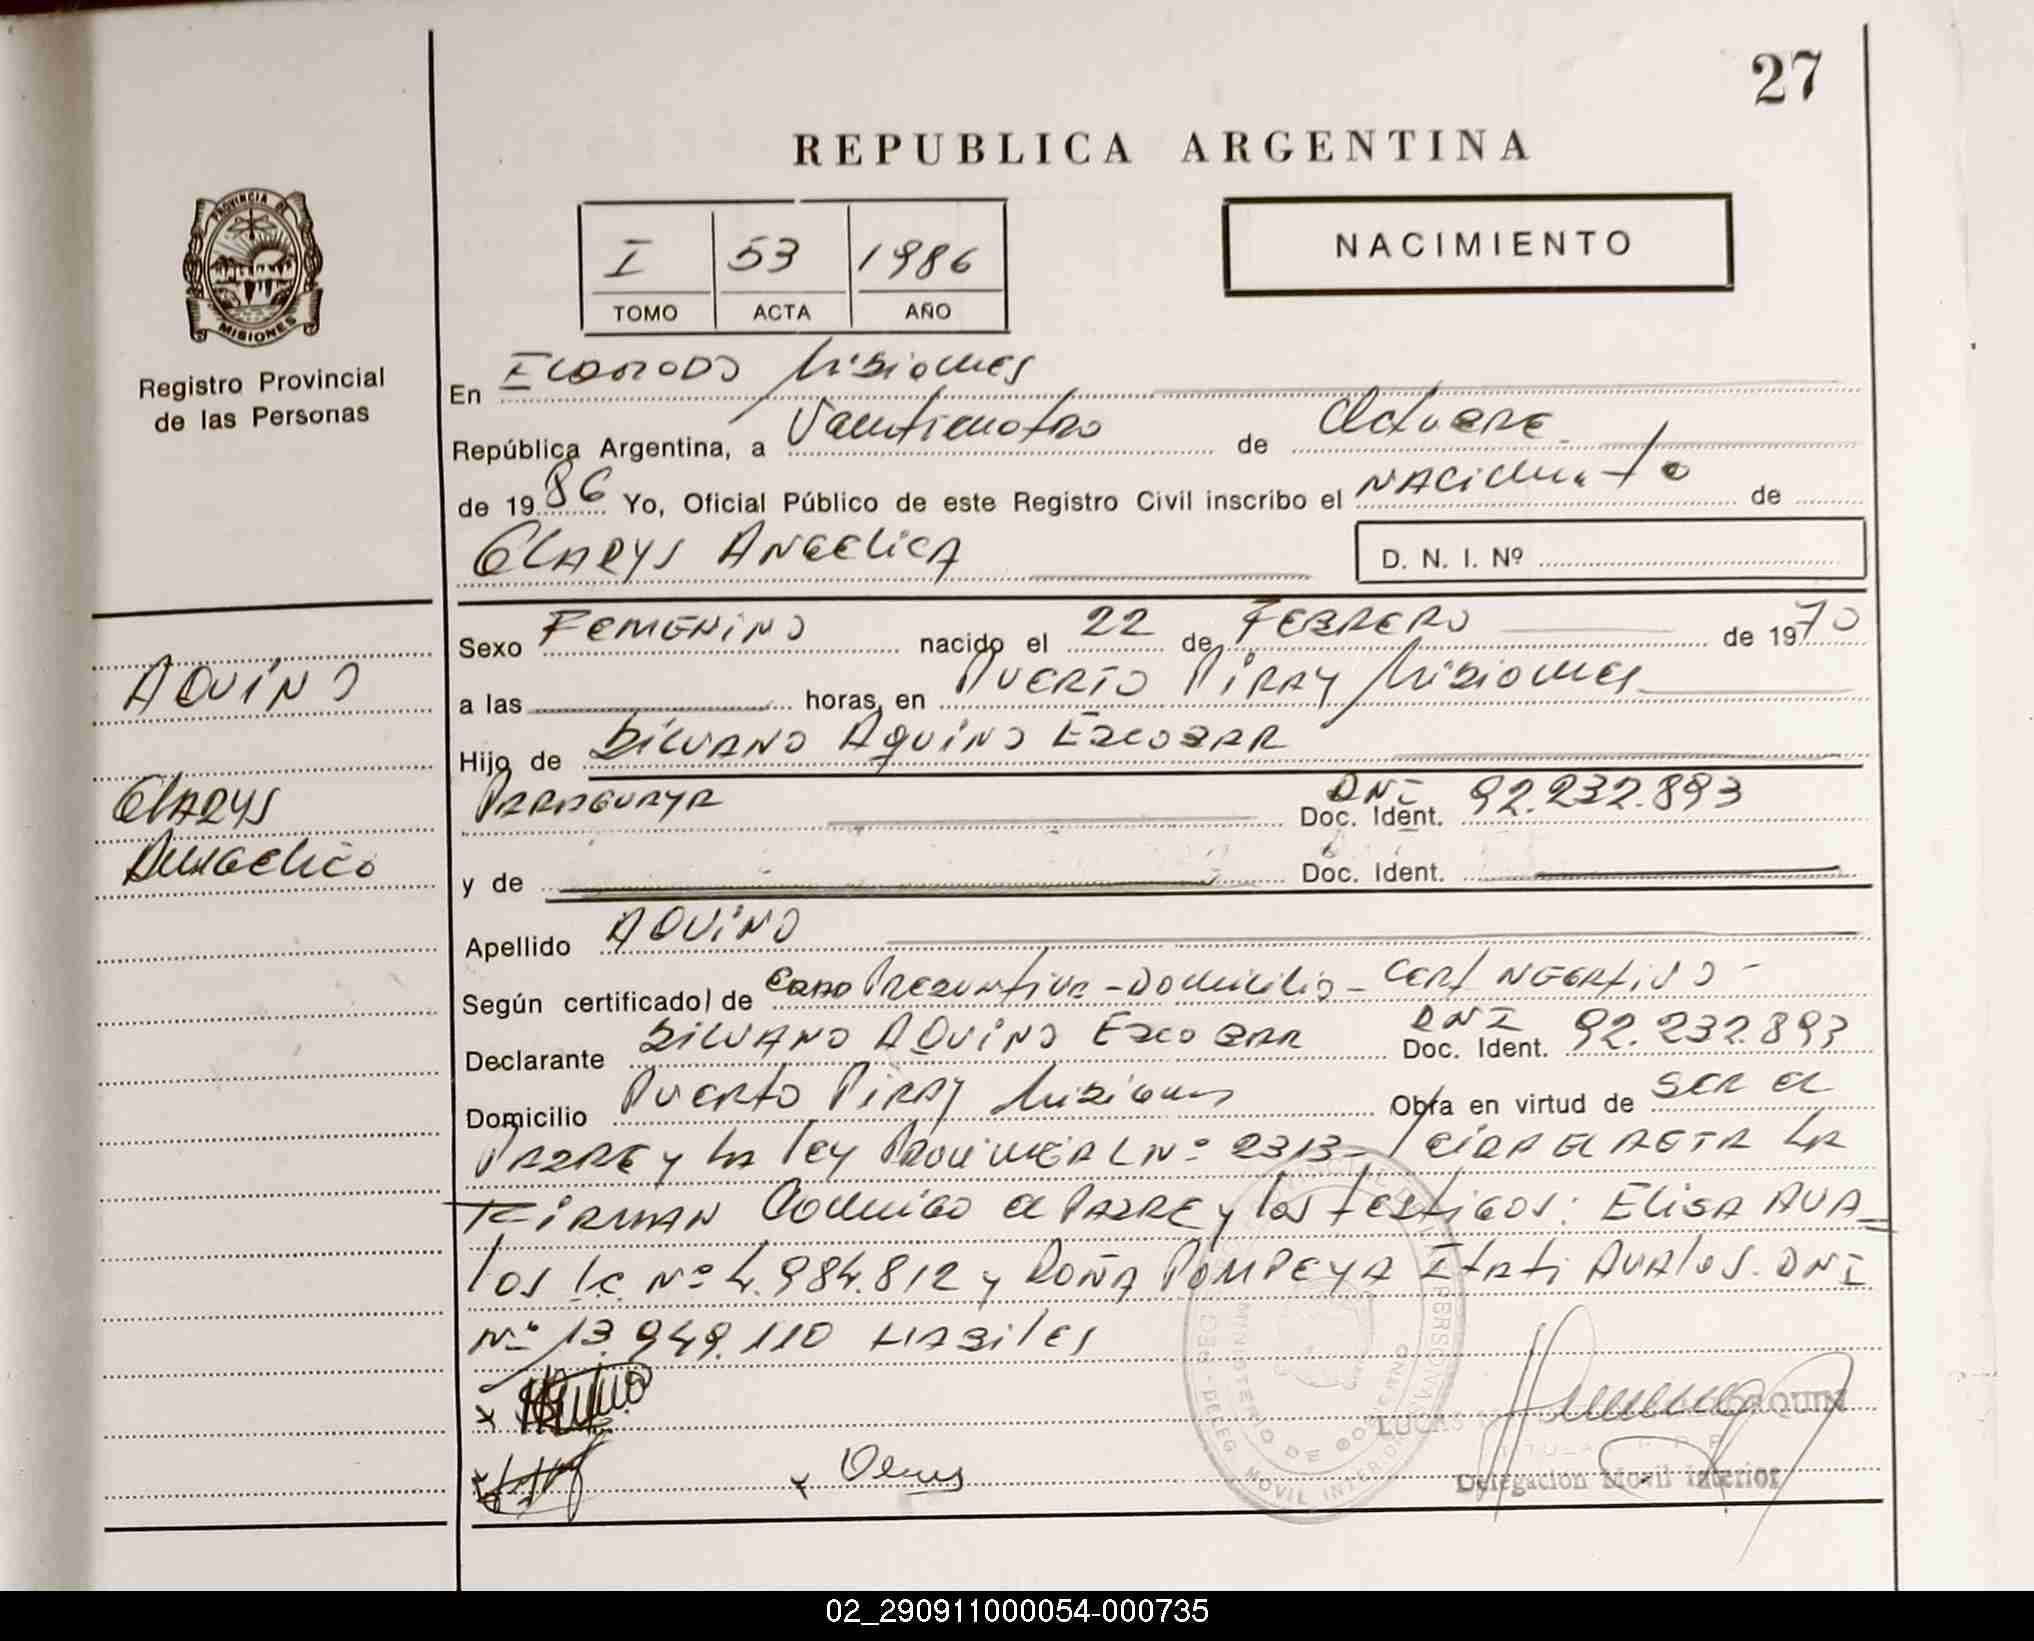 27
REPUBLICA ARGENTINA
I 53 1986
TOMO ACTA AÑO
NACIMIENTO
PROVINCIA DE
MISIONES
Registro Provincial
de las Personas
En Eldorado Misiones
República Argentina, a Veinticuatro de Octubre
de 19 86 Yo, Oficial Público de este Registro Civil inscribo el Nacimiento de
GLADYS ANGELICA
D. N. I. Nº
Sexo FEMENINO nacido el 22 de FEBRERO de 19 70
a las horas, en PUERTO PIRAY Misiones
Hijo de SILVANO AQUINO ESCOBAR
PARAGUAYA DNI Doc. Ident. 92.232.893
y de Doc. Ident.
Apellido AQUINO
Según certificado de Edad Presuntiva - Domicilio - Cert Negativo -
Declarante SILVANO AQUINO ESCOBAR DNI Doc. Ident. 92.232.893
Domicilio Puerto Piray Misiones Obra en virtud de ser el
PADRE y la ley Provincial Nº 2313 - Leida el acta la
FIRMAN Conmigo el PADRE y los testigos: ELISA AVA=
los lc. Nº 4.984.812 y DOÑA POMPEYA Itati AVAlos. DNI
Nº 13.949.110 HABILES
AQUINO
GLADYS
Angelica
LUCAS JOAQUIN
TITULAR
Delegacion Movil Interior
MINISTERIO DE GOBIERNO
DELEG MOVIL INTERIOR
02_290911000054-000735